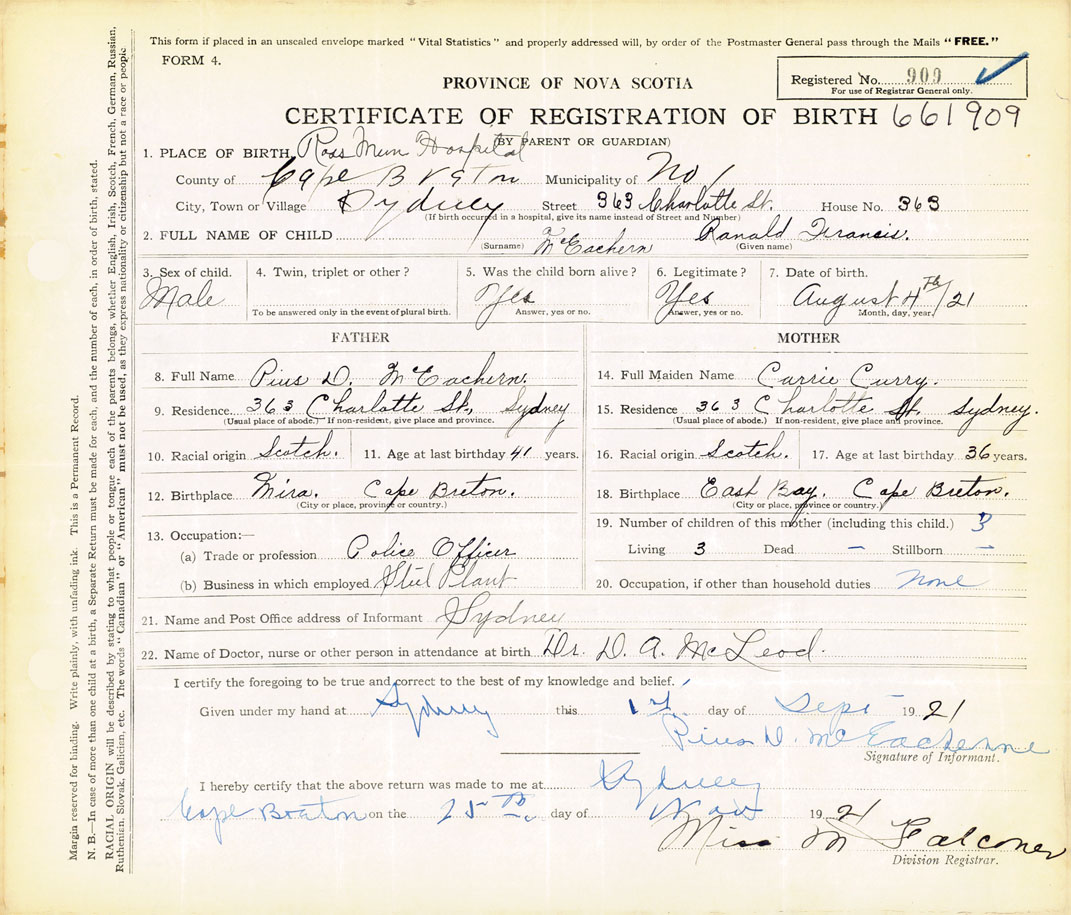 This form if placed in an unsealed envelope marked "Vital Statistics" and properly addressed will, by order of the Postmaster General pass through the Mails "FREE."
FORM 4.
Registered No. 909
For use of Registrar General only.
PROVINCE OF NOVA SCOTIA
CERTIFICATE OF REGISTRATION OF BIRTH 661909
(BY PARENT OR GUARDIAN)
1. PLACE OF BIRTH Ross Mem Hospital
County of Cape Breton Municipality of No 1
City, Town or Village Sydney Street 363 Charlotte St. House No. 363
(If birth occurred in a hospital, give its name instead of Street and Number)
2. FULL NAME OF CHILD McEachern Ranald Francis.
(Surname) (Given name)
3. Sex of child. 4. Twin, triplet or other? 5. Was the child born alive? 6. Legitimate? 7. Date of birth.
Male Yes Yes August 4th/21
To be answered only in the event of plural birth. Answer, yes or no. Answer, yes or no. Month, day, year.
FATHER
8. Full Name Pius D. McEachern.
9. Residence 363 Charlotte St., Sydney
(Usual place of abode.) If non-resident, give place and province.
10. Racial origin Scotch. 11. Age at last birthday 41 years.
12. Birthplace Mira. Cape Breton.
(City or place, province or country.)
13. Occupation:—
(a) Trade or profession Police Officer
(b) Business in which employed Steel Plant
MOTHER
14. Full Maiden Name Carrie Curry.
15. Residence 363 Charlotte St. Sydney.
(Usual place of abode.) If non-resident, give place and province.
16. Racial origin Scotch. 17. Age at last birthday 36 years.
18. Birthplace East Bay. Cape Breton.
(City or place, province or country.)
19. Number of children of this mother (including this child.) 3
Living 3 Dead — Stillborn —
20. Occupation, if other than household duties none
21. Name and Post Office address of Informant Sydney
22. Name of Doctor, nurse or other person in attendance at birth Dr. D. A. McLeod.
I certify the foregoing to be true and correct to the best of my knowledge and belief.
Given under my hand at Sydney this 1st day of Sept 1921
Pius D. McEacherne
Signature of Informant.
I hereby certify that the above return was made to me at Sydney
Cape Breton on the 25th. day of Nov 1921
Miss M Falconer
Division Registrar.
Margin reserved for binding. Write plainly, with unfading ink. This is a Permanent Record.
N. B.—In case of more than one child at a birth, a Separate Return must be made for each, and the number of each, in order of birth, stated.
RACIAL ORIGIN will be described by stating to what people or tongue each of the parents belongs, whether English, Irish, Scotch, French, German, Russian,
Ruthenian, Slovak, Galician, etc. The words "Canadian" or "American" must not be used, as they express nationality or citizenship but not a race or people